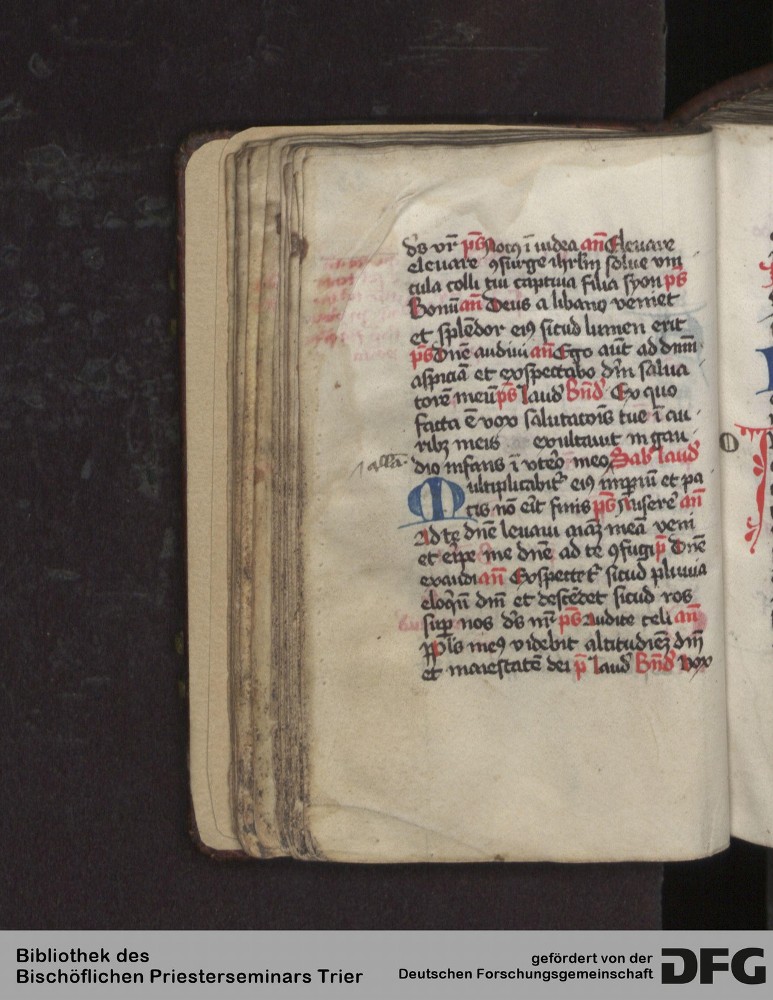 ds vr̄ ps̄ Notꝰ ī iudea an̄ Eleuare
eleuare ꝯsurge ihrlm̄ solue vin
cula colli tui captiua filia syon ps̄
Bonū an̄ Deus a libano veniet
et splēdor eiꝰ sicud lumen erit
ps̄ Dn̄e audiui an̄ Ego aūt ad dnm̄
aspiciā et exspectabo dm̄ salua
torē meū ps̄ laud Bn̄d Ex quo
facta ē vox salutatōis tue ī au
ribꝫ meis exultauit in gau
allā
dio infans ī vtero meo Sabb laud
Multiplicabit᷑ eiꝰ imꝑiū et pa
cis nō erit finis ps̄ Misere an̄
Ad te dn̄e leuaui aiāꝫ meā veni
et eripe me dn̄e ad te ꝯfugi p̄ Dn̄e
exaudi an̄ Exspectet᷑ sicud pluuia
eloqiū dn̄i et descēdet sicud ros
sup nos ds nr̄ ps̄ Audite celi an̄
Ppls meꝰ videbit altitudiēꝫ dn̄i
et maiestatē dei p̄ laud Bn̄d vox
Bibliothek des
Bischöflichen Priesterseminars Trier
gefördert von der
Deutschen Forschungsgemeinschaft
DFG